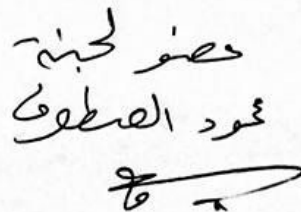 عضو لجنة
محمود العطوي